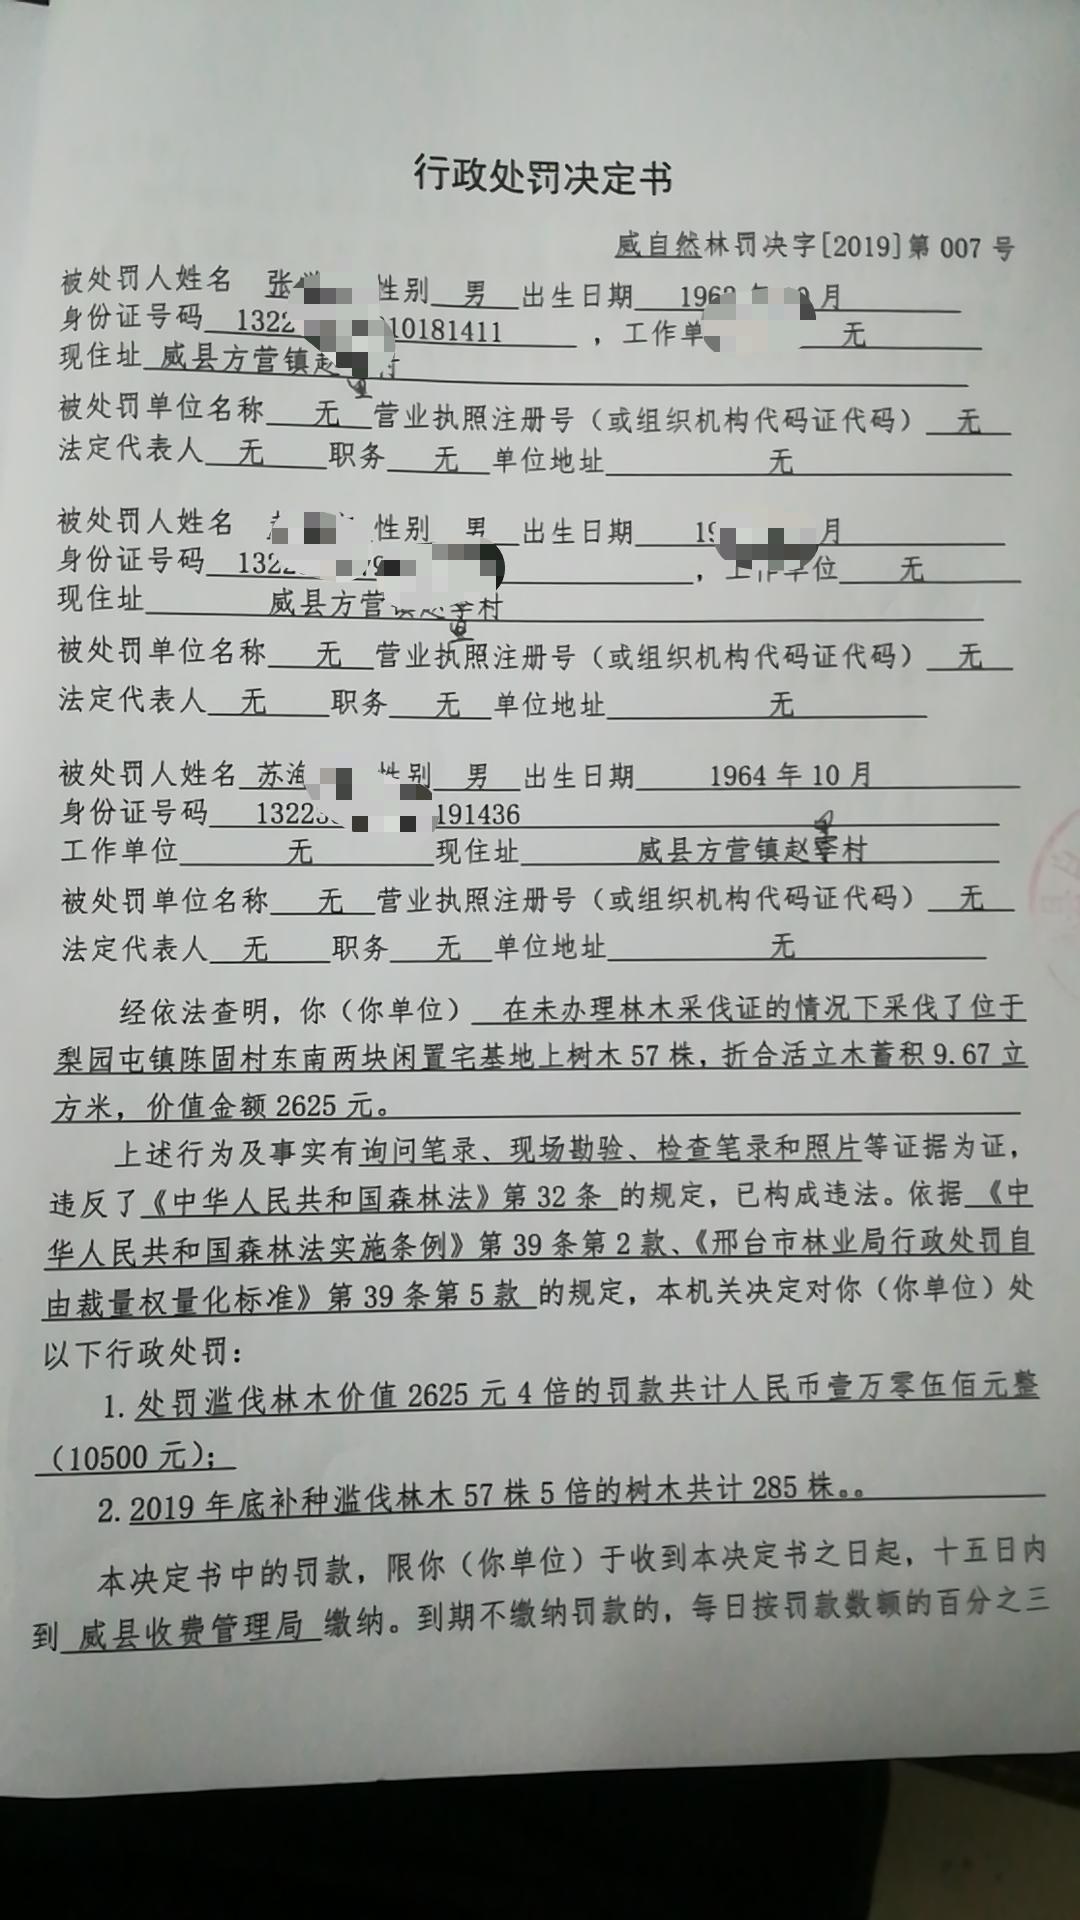 行政处罚决定书
威自然林罚决字[2019]第 007 号
被处罚人姓名 张 性别 男 出生日期 196 月
身份证号码 1322 10181411 ，工作单 无
现住址 威县方营镇赵 村
被处罚单位名称 无 营业执照注册号（或组织机构代码证代码） 无
法定代表人 无 职务 无 单位地址 无
被处罚人姓名 性别 男 出生日期 19 月
身份证号码 1322 ，工作单位 无
现住址 威县方营镇赵 村
被处罚单位名称 无 营业执照注册号（或组织机构代码证代码） 无
法定代表人 无 职务 无 单位地址 无
被处罚人姓名 苏海 性别 男 出生日期 1964 年 10 月
身份证号码 1322 191436
工作单位 无 现住址 威县方营镇赵 村
被处罚单位名称 无 营业执照注册号（或组织机构代码证代码） 无
法定代表人 无 职务 无 单位地址 无
经依法查明，你（你单位） 在未办理林木采伐证的情况下采伐了位于
梨园屯镇陈固村东南两块闲置宅基地上树木 57 株，折合活立木蓄积 9.67 立
方米，价值金额 2625 元。
上述行为及事实有询问笔录、现场勘验、检查笔录和照片等证据为证，
违反了《中华人民共和国森林法》第 32 条 的规定，已构成违法。依据 《中
华人民共和国森林法实施条例》第 39 条第 2 款、《邢台市林业局行政处罚自
由裁量权量化标准》第 39 条第 5 款 的规定，本机关决定对你（你单位）处
以下行政处罚：
1. 处罚滥伐林木价值 2625 元 4 倍的罚款共计人民币壹万零伍佰元整
（10500 元）；
2. 2019 年底补种滥伐林木 57 株 5 倍的树木共计 285 株。。
本决定书中的罚款，限你（你单位）于收到本决定书之日起，十五日内
到 威县收费管理局 缴纳。到期不缴纳罚款的，每日按罚款数额的百分之三